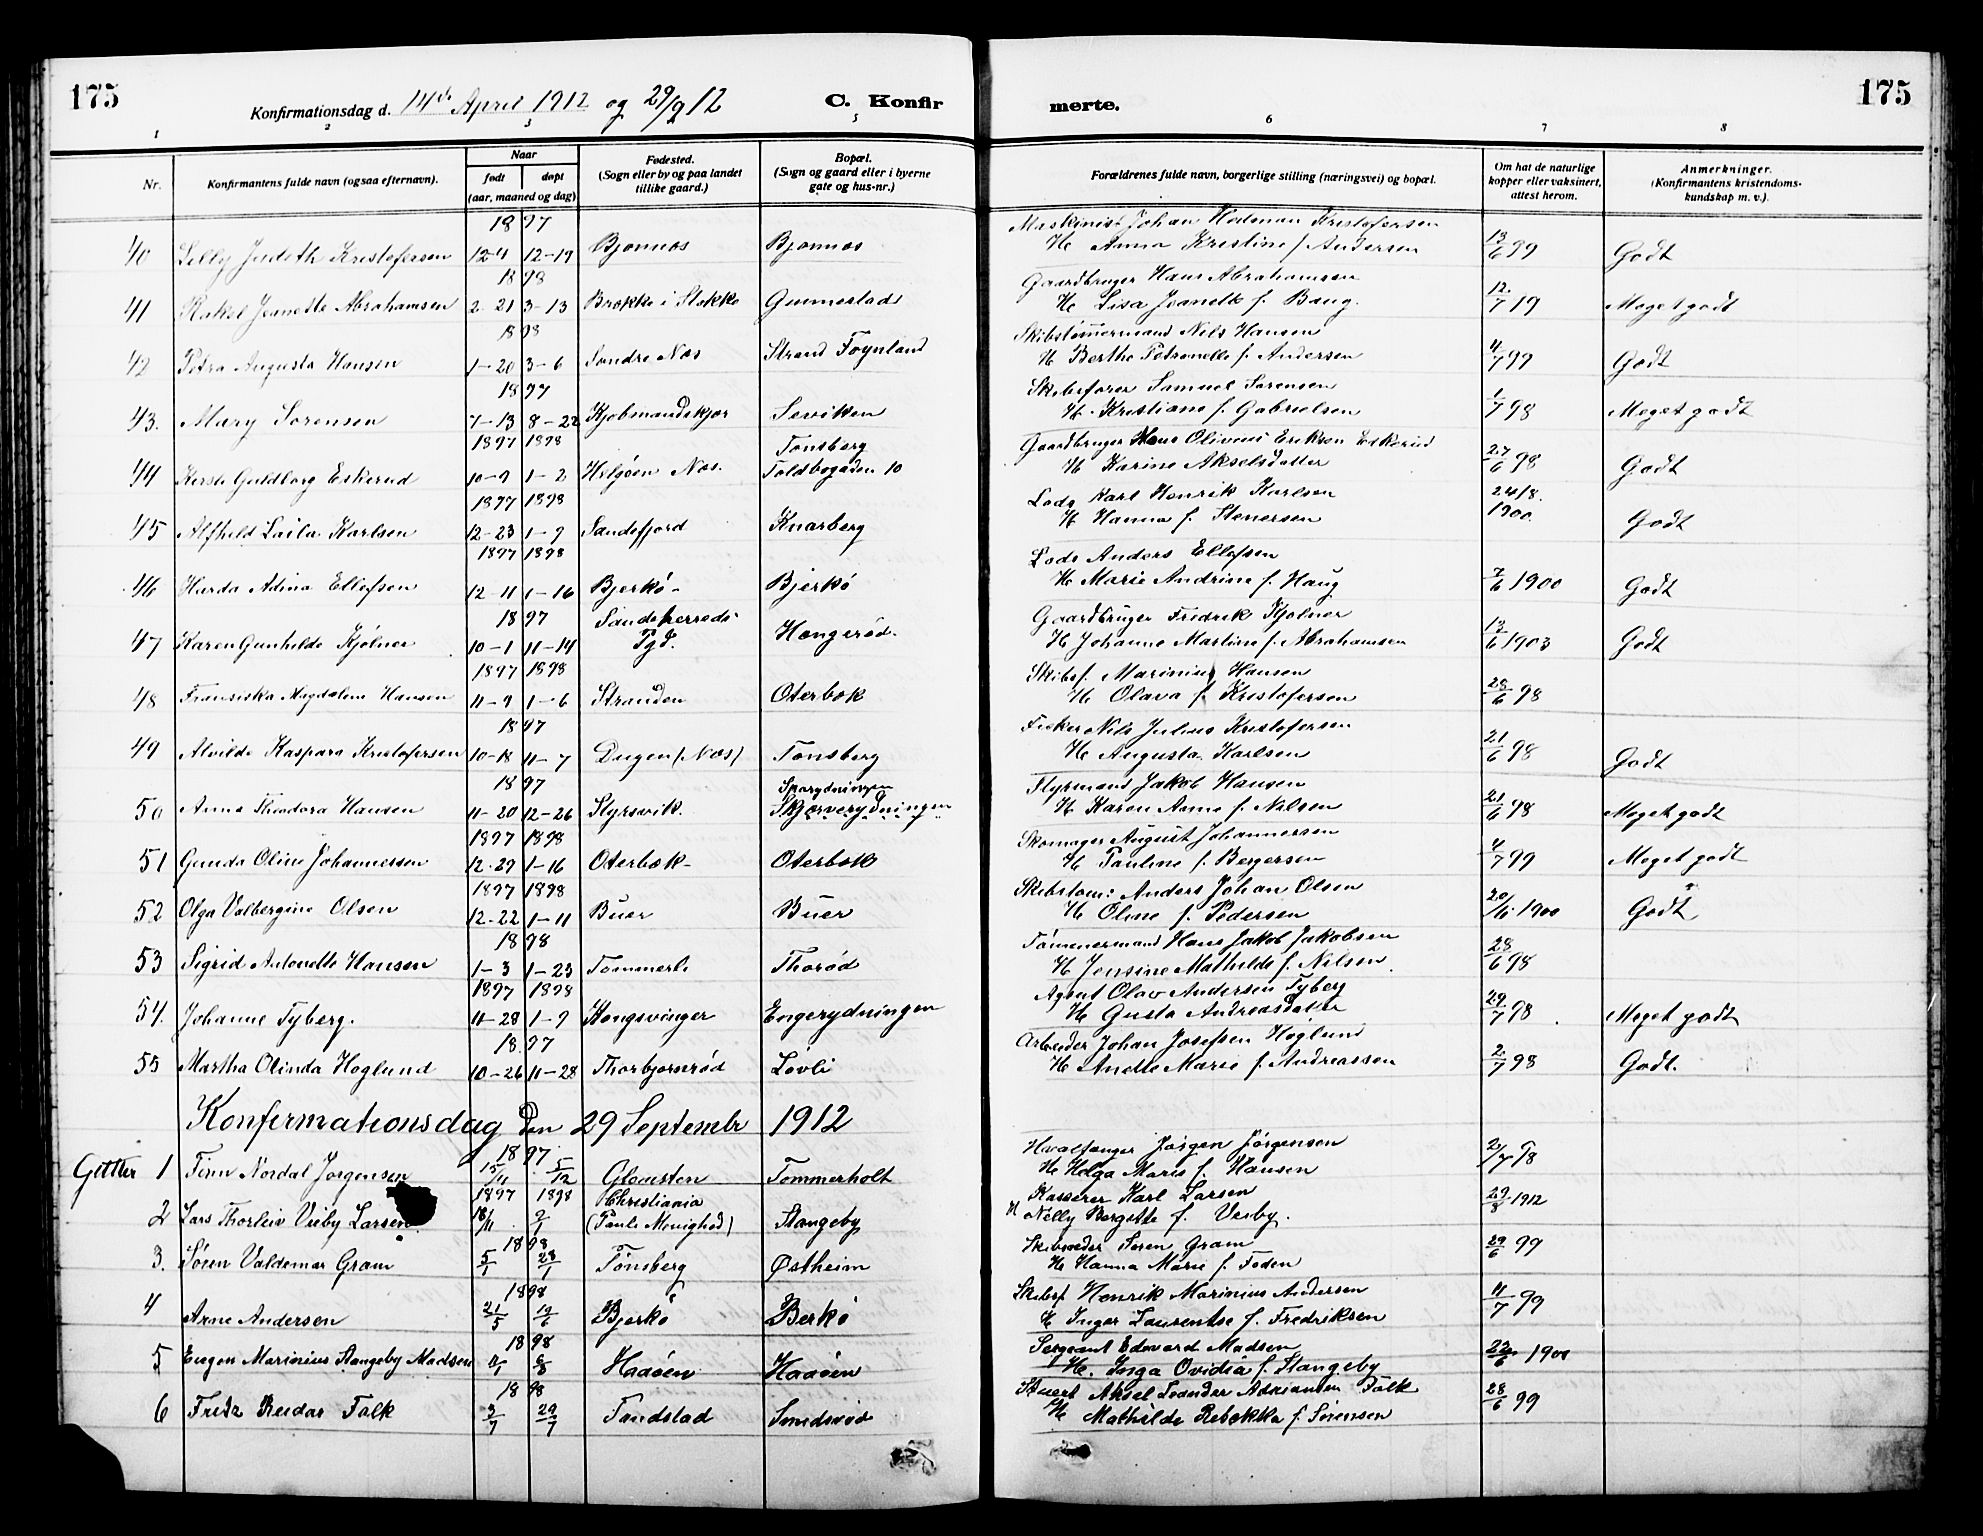 175
Konfirmationsdag d. 14de April 1912 og 29/9 12
C. Konfir
merte.
175
1 2 3 5 6 7 8
Nr.
Konfirmantens fulde navn (ogsaa efternavn).
Naar
født døpt
(aar, maaned og dag)
Fødested.
(Sogn eller by og paa landet
tillike gaard.)
Bopæl.
(Sogn og gaard eller i byerne
gate og hus-nr.)
Forældrenes fulde navn, borgerlige stilling (næringsvei) og bopæl.
Om hat de naturlige
kopper eller vaksinert,
attest herom.
Anmerkninger.
(Konfirmantens kristendoms-
kundskap m. v.).
1897 Maskinist Johan Kristofersen
40 Lilly Judith Kristofersen 12-4 12-19 Bjønnes Bjønnes H Anna Kristine f. Andersen 13/6 99 Godt
1898 Gaardbruger Hans Abrahamsen
41 Rakel Jeanette Abrahamsen 2-21 3-13 Brekke i Stokke Gunnestad H Lisa Jeanette f. Baug. 12/7 19 Meget godt
1898 Skibstømmermand Nils Hansen
42 Petra Augusta Hansen 1-20 3-6 Søndre Nes Strand Føynland H Berthe Petronelle f. Andersen 4/7 99 Godt
1897 Skibsfører Samuel Sørensen
43. Mary Sørensen 7-13 8-22 Kjøbmandskjær Seviken H. Kristiane f. Gabrielsen 1/7 98 Meget godt
1897 1898 Tønsberg Gaardbruger Hans Olivius Eriksen Eskerud
44 Guldborg Eskerud 10-9 1-2 Helgøen Nes. Toldbogaden 10 H Karine Akselsdatter 27/6 98 Godt
1897 1898 Lods Karl Henrik Karlsen 24/8.
45 Alfhild Laila Karlsen 12-23 1-9 Sandefjord Knarberg H Hanna f. Stenersen 1900 Godt
1897 1898 Lods Anders Ellefsen
46 Harda Adina Ellefsen 12-11 1-16 Bjerkö- Bjerkö H Marie Andrine f. Haug 7/6 1900 Godt
1897 Sandeherreds- Gaardbruger Fredrik Kjölner
47 Karen Gunhilde Kjölner 10-1 11-14 Pgd. Hengsrød. H Johanne Martine f. Abrahamsen 13/6 1903 Godt
1897 1898 Skibsf. Marinius Hansen
48 Fransiska Magdalene Hansen 11-9 1-6 Stranden Oterbek H Olava f. Kristofersen 28/6 98
1897 Fisker Nils Julius Kristofersen
49 Alvilde Kaspara Kristofersen 10-18 11-7 Dugen (Nes) Tønsberg H Augusta Karlsen 21/6 98 Godt
1897 Sparydningen Styrmand Jakob Hansen
50 Anna Theodora Hansen 11-20 12-26 Styrsvik. Skjærverydningen H Karen Anne f. Nilsen 21/6 98 Meget godt
1897 1898 Skomager August Johannessen
51 Gunda Oline Johannessen 12-29 1-16 Oterbæk- Oterbek H Pauline f. Bergersen 4/7 99 Meget godt
1897 1898 Skibstøm: Anders Johan Olsen
52 Olga Valbergine Olsen 12-22 1-11 Buer Buer H Oline f. Pedersen 20/6 1900 Godt
1898 Tømmermand Hans Jakob Jakobsen
53 Sigrid Antonette Hansen 1-3 1-23 Tommerli Thorød H Jensine Mathilde f. Nilsen. 28/6 98
1897 1898 Agent Olav Andersen Tyberg
54. Johanne Tyberg. 11-28 1-9 Kongsvinger Engerydningen H Gusta Andreasdatter 29/7 98 Meget godt
1897 Arbeider Johan Josefsen Høglund
55 Martha Olinda Høglund 10-26 11-28 Thorbjørnrød Løvli H Anette Marie f. Andreassen 2/7 98 Godt.
Konfirmationsdag den 29 Septembr 1912
1897 Hvalfanger Jørgen Jörgensen
Gutter 1 Finn Nordal Jørgensen 15/11 5/12 Glomsten Tommerholt H Helga Marie f. Hansen 2/7 98
1897 1898 Christiania Kasserer Karl Larsen
2 Lars Thorleiv Veiby Larsen 18/11 2/1 (Pauls Menighed) Stangeby H Nelly Bergitte f. Veiby. 29/8 1912
1898 Skibsreder Søren Gram
3. Sören Valdemar Gram 5/1 28/1 Tönsberg Østheim H Hanna Marie f. Foden 29/6 99
1898 Skibsf Henrik Marinius Andersen
4 Arne Andersen 21/5 19/6 Bjerkö Berkö H Inger Laurentse f. Fredriksen 11/7 99
1898 Sergeant Edevard Madsen
5 Eugen Marinius Stangeby Madsen Haaöen Haaöen H. Inga Ovidia f. Stangeby 22/6 1900
1898 Stuert Aksel Leander Adriansen Falk
6 Fritz Reidar Falk 3/7 29/7 Fandstad Smedsrød H Mathilde Rebekka f. Sörensen 28/6 99